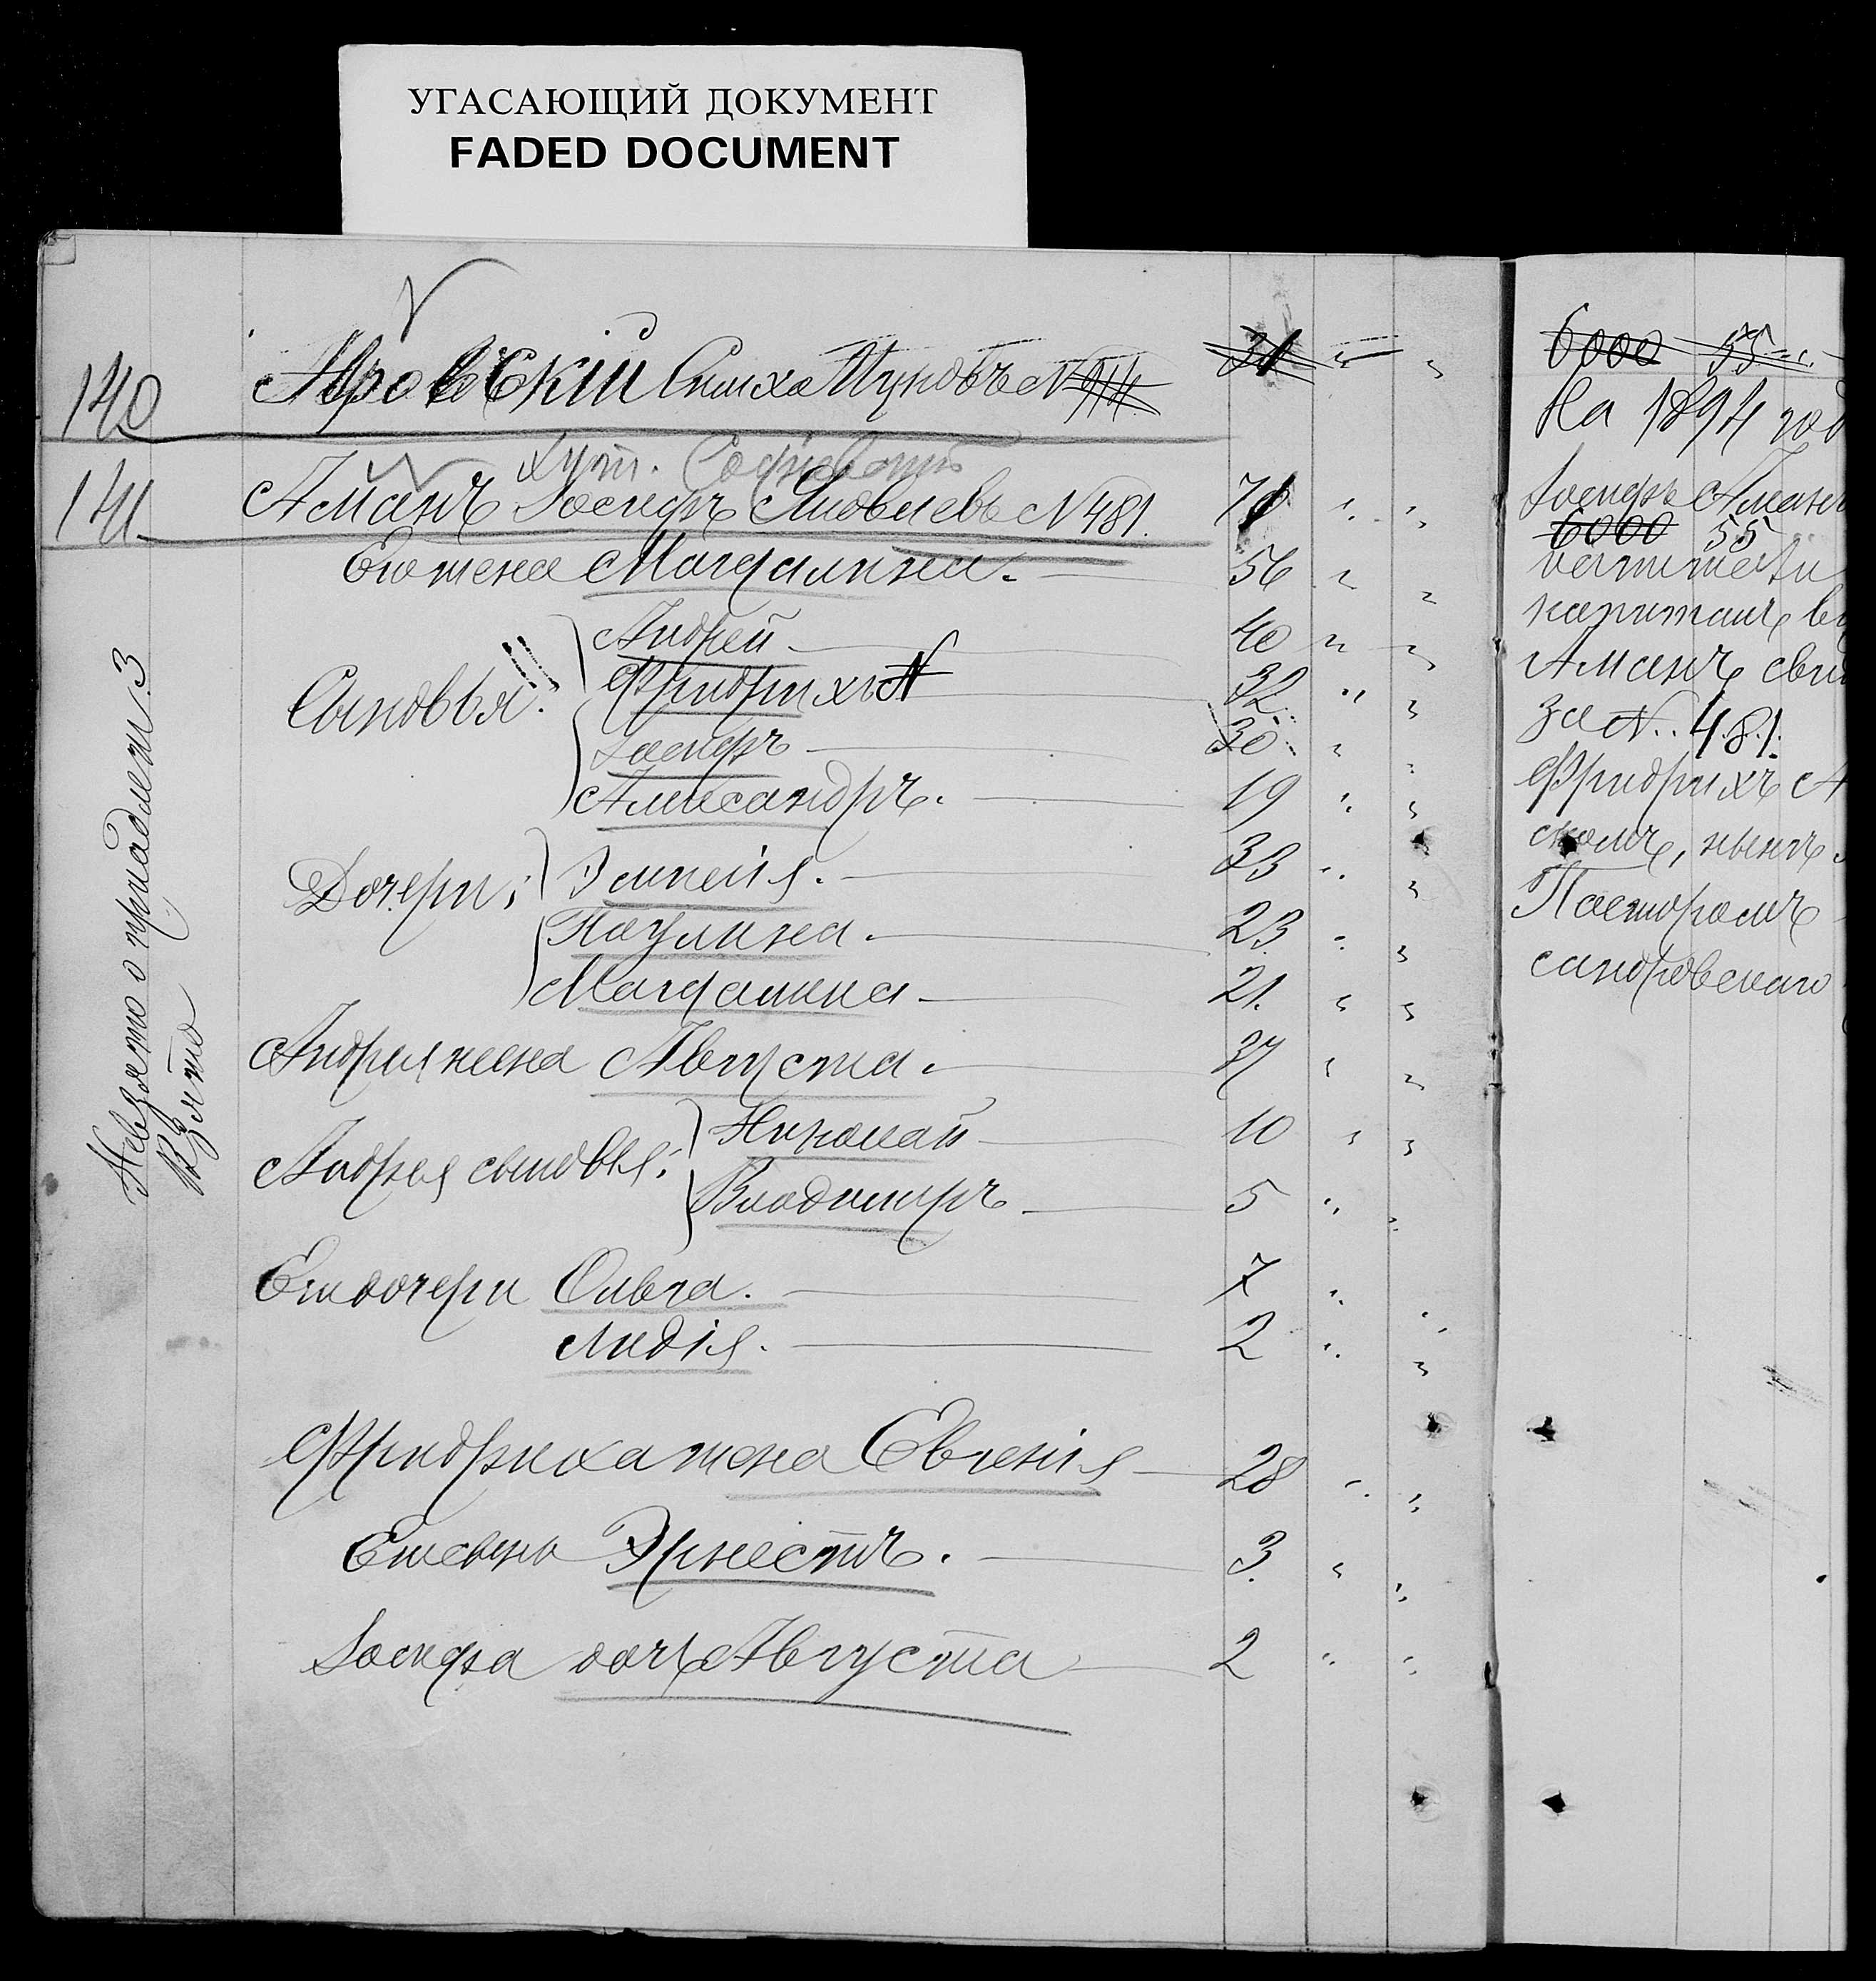 УГАСАЮЩИЙ ДОКУМЕНТ
FADED DOCUMENT
140 Яровскiй Симха Муновъ №
хут.
141 Аманъ Iосифъ Яковлевъ № 481. 71
Его жена Магдалина. 56
Сыновья: Андрей 40
Фридрихъ 32
Iосифъ 30
Александръ. 19
Дочери: Эмилiя. 33
Паулина. 23
Магдалина 21.
Андрея жена Августа. 37
Андрея сыновья: Николай 10
Владимиръ 5
Его дочери Ольга. 7
Лидiя. 2
Фридриха жена Евгенiя 28
Его сынъ Эрнестъ. 3
Iосифа дочь Августа 2
Невзято о принадлежн. 3
Взято
6000 55
На 1894 год
Iосифъ Аман
6000 55
капиталъ
Аманъ сви
за № 481.
Фридрихъ А
скомъ, нынѣ
Пасторомъ
сандровскаго